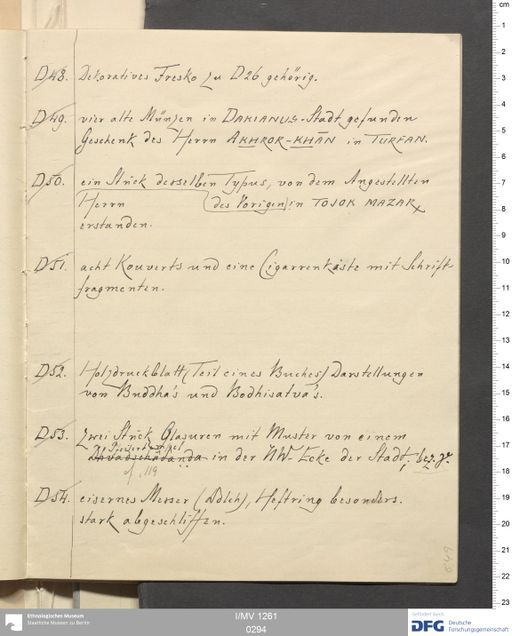 D48. Dekoratives Fresko zu D26 gehörig.
D49. vier alte Münzen in DAKIANUS-Stadt gefunden
Geschenk des Herrn AKHROR-KHĀN in TURFAN.
D50. ein Stück desselben Typus, von dem Angestellten
Herrn des Vorigen in TOJOK MAZAR
erstanden.
D51. acht Kouverts und eine Cigarrenkiste mit Schrift-
fragmenten.
D52. Holzdruckblatt (Teil eines Buches) Darstellungen
von Buddha's und Bodhisatva's.
D53. zwei Stück Glasuren mit Muster von einem
in der NW-Ecke der Stadt; bez. γ.
cf. 119
D54. eisernes Messer (Dolch), Heftring besonders.
stark abgeschliffen.
649
cm
1
2
3
4
5
6
7
8
9
10
11
12
13
14
15
16
17
18
19
20
21
22
23
Ethnologisches Museum
Staatliche Museen zu Berlin
I/MV 1261
0294
Gefördert durch
DFG Deutsche
Forschungsgemeinschaft